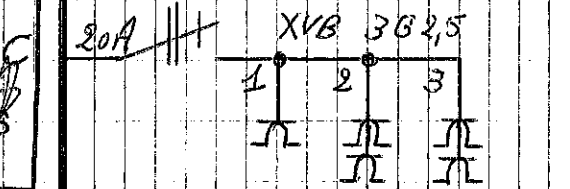 20A XVB 3G 2,5
1 2 3